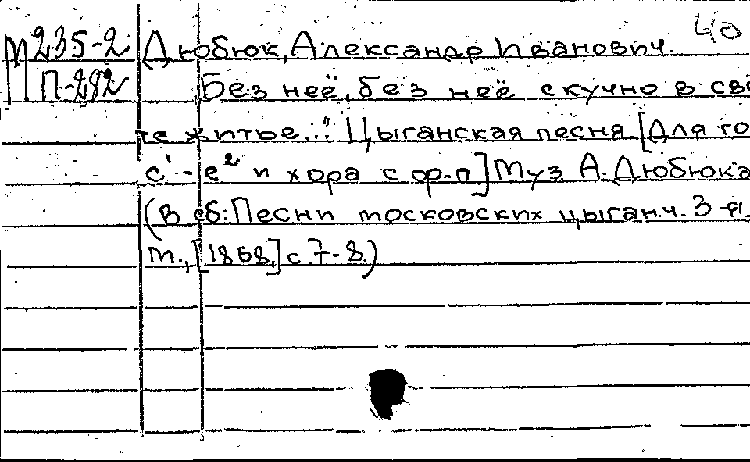 40
М235-2 Дюбюк, Александр Иванович.
П-282 Без неё, без неё скучно в све
те житье..." Цыганская песня [Для го
с¹-е² и хора с ф.-п] Муз А. Дюбюка
(В сб: Песни московских цыган. ч. 3-я.
М., [1868] с. 7-8.)